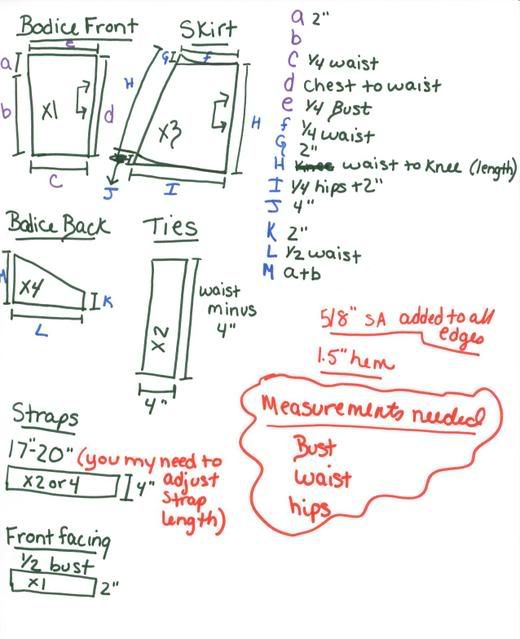 Bodice Front
Skirt
e
a
b
x1
d
C
G I
f
H
x3
H
J
I
a 2"
b
C 1/4 waist
d Chest to waist
e 1/4 Bust
f 1/4 waist
G 2"
H Knee waist to Knee (length)
I 1/4 hips + 2"
J 4"
K 2"
L 1/2 waist
M a+b
Bodice Back
M
x4
K
L
Ties
x2
waist
minus
4"
4"
5/8" SA added to all
edges
1.5" hem
Measurements needed
Bust
waist
hips
Straps
17"-20" (you my need to
adjust
strap
length)
x2 or 4
4"
Front facing
1/2 bust
x1
2"